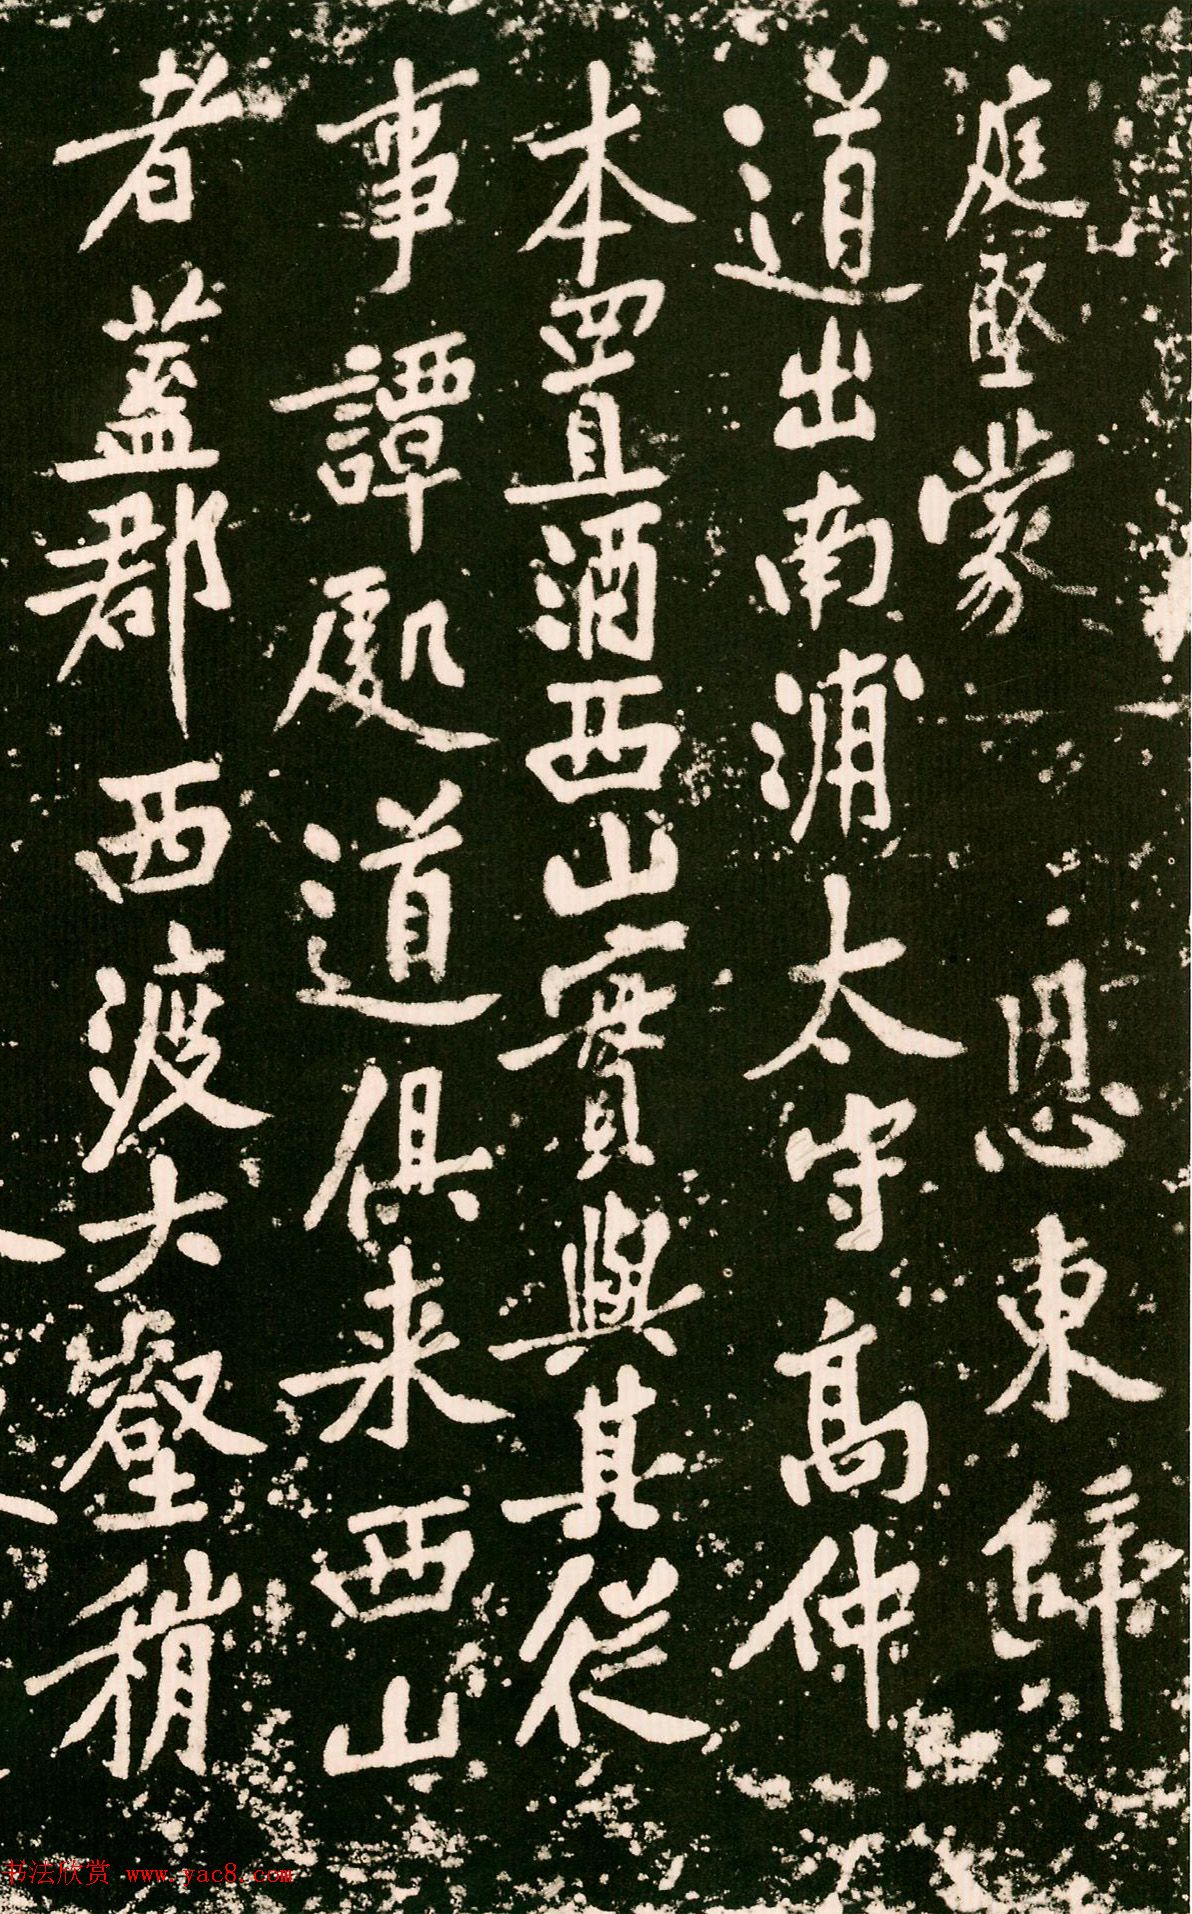 庭堅蒙恩東歸
道出南浦太守高仲
本置酒西山實與其從
事譚處道俱来西山
者蓋郡西渡大壑稍
书法欣赏 www.yac8.com